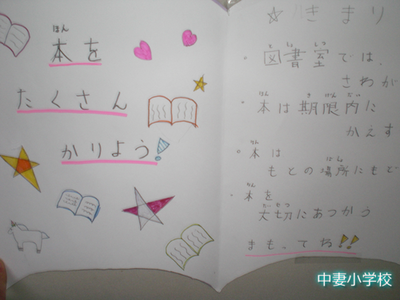 本を
たくさん
かりよう!
☆きまり
・図書室では、
さわが
・本は期限内に
かえす
・本は
もとの場所にもど
・本を
大切にあつかう
まもってね!!
中妻小学校